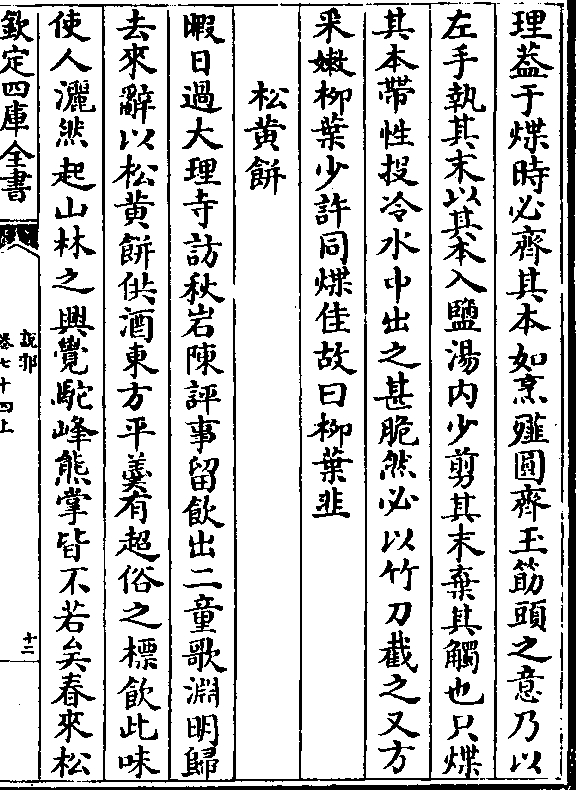 理葢于煠時必齊其本如烹薤圓齊玉筯頭之意乃以
左手執其末以其本入鹽湯内少剪其末棄其觸也只煠
其本帶性投冷水中出之甚脆然必以竹刀截之又方
采嫩柳葉少許同煠佳故曰柳葉韭
松黄餅
暇日過大理寺訪秋岩陳評事留飲出二童歌淵明歸
去來辭以松黄餅供酒東方平羮有超俗之標飲此味
使人灑然起山林之興覺駝峰熊掌皆不若矣春來松
欽定四庫全書
說郛
卷七十四上
十二